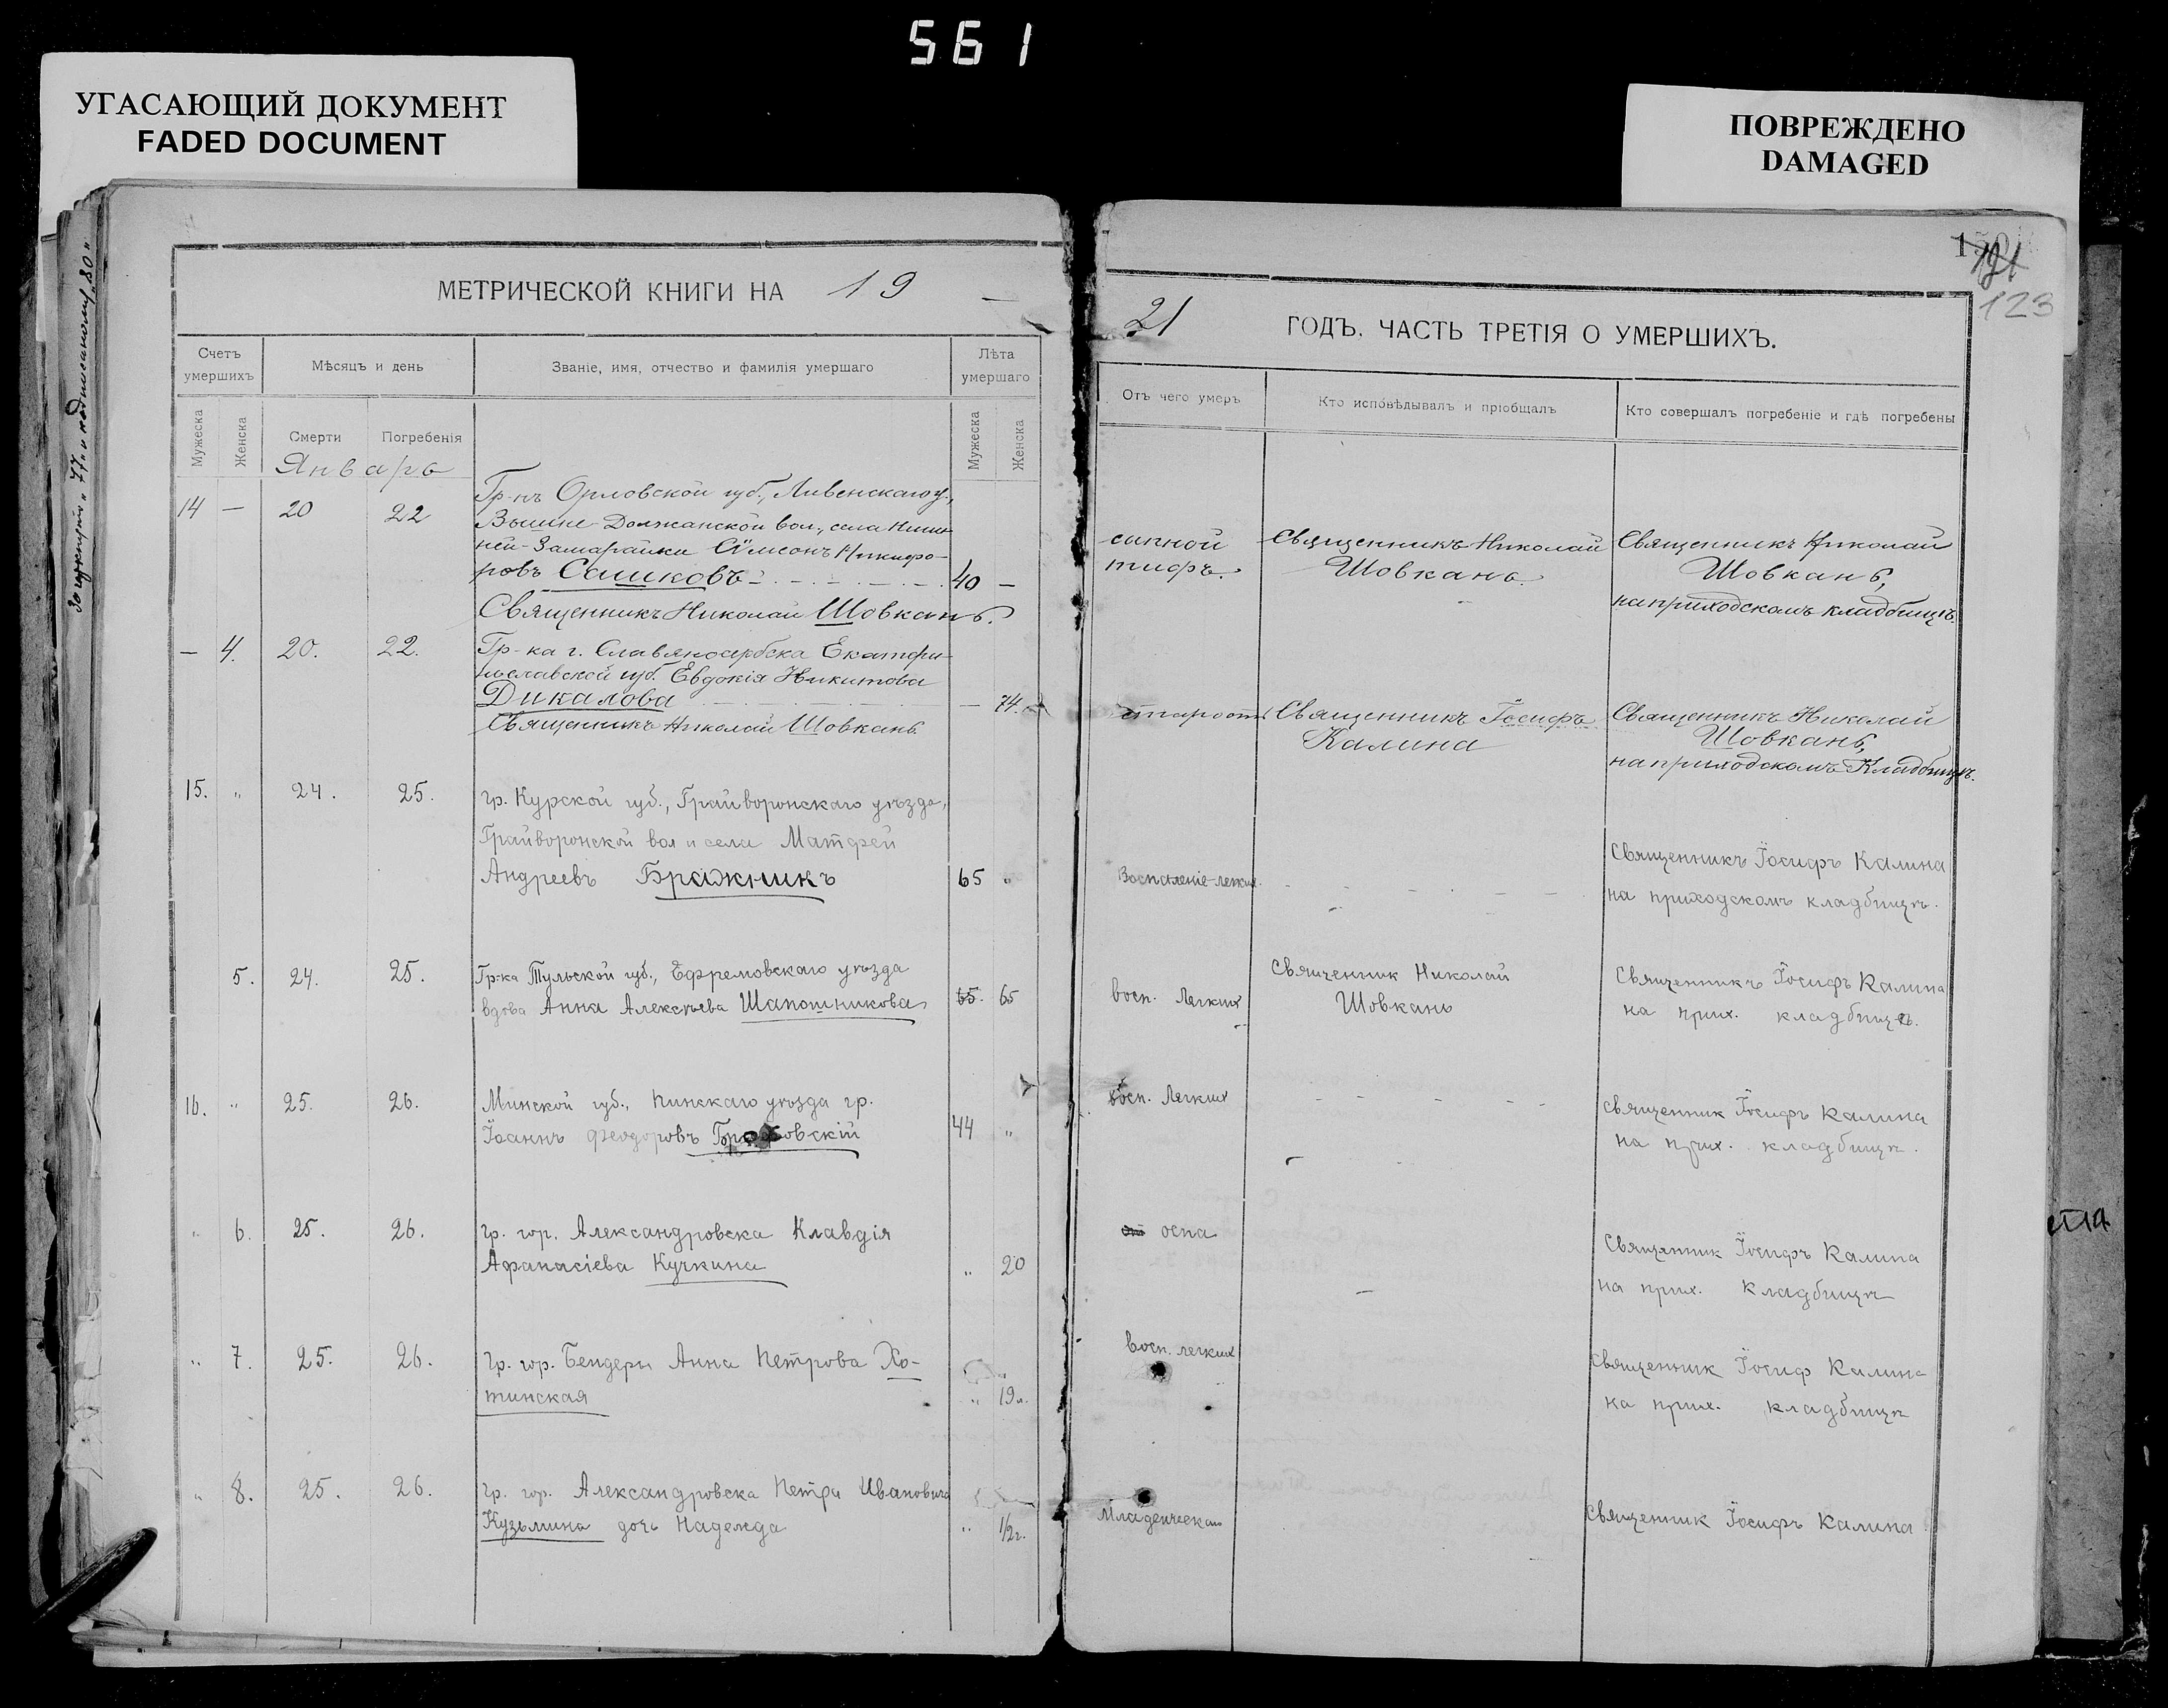 561
УГАСАЮЩИЙ ДОКУМЕНТ
FADED DOCUMENT
ПОВРЕЖДЕНО
DAMAGED
123
МЕТРИЧЕСКОЙ КНИГИ НА 19
Счетъ умершихъ
Мѣсяцъ и день
Званіе, имя, отчество и фамилія умершаго
Лѣта умершаго
Мужеска
Женска
Смерти
Погребенія
Мужеска
Женска
Январь
Гр-нъ Орловской губ., Ливенскаго у.,
14 — 20 22 Вышне-Должанской вол., села Ниж-
ней-Замарайки Сѵмеонъ Никифо-
ровъ Сашковъ 40 —
Священникъ Николай Шовкань.
— 4. 20. 22. Гр-ка г. Славяносербска Екатери-
нославской губ. Евдокія Никитова
Дикалова — 74.
Священникъ Николай Шовкань
15. „ 24. 25. гр. Курской губ., Грайворонскаго уѣзда,
Грайворонской вол и села Матфей
Андреевъ Бражникъ 65 „
5. 24. 25. Гр-ка Тульской губ., Ефремовскаго уѣзда
вдова Анна Алексѣева Шапошникова 65. 65
16. „ 25. 26. Минской губ., Пинскаго уѣзда гр.
Іоаннъ Феодоровъ 44 „
„ 6. 25. 26. гр. гор. Александровска Клавдія
Афанасіева Кучкина „ 20
„ 7. 25. 26. гр. гор. Бендеры Анна Петрова Хо-
тинская „ 19 л.
„ 8. 25. 26. гр. гор. Александровска Петра Ивановича
Кузьмина дочь Надежда „ 1/2 г.
21 ГОДЪ. ЧАСТЬ ТРЕТІЯ О УМЕРШИХЪ.
Отъ чего умеръ
Кто исповѣдывалъ и пріобщалъ
Кто совершалъ погребеніе и гдѣ погребены
сыпной Священникъ Николай Священникъ Николай
тифъ. Шовкань. Шовкань,
на приходскомъ кладбищѣ.
старости Священникъ Іосифъ Священникъ Николай
Калина Шовкань,
на приходскомъ Кладбищѣ.
Священникъ Іосифъ Калина
Воспаленіе легких. на приходскомъ кладбищѣ.
Священник Николай Священникъ Іосифъ Калина
восп. Легких Шовкань на прих. кладбищѣ.
восп. Легких священник Іосифъ Калина
на прих. кладбищѣ.
оспа Священник Іосифъ Калина
на прих. кладбищѣ
Восп. легких Священник Іосиф Калина
на прих. кладбищѣ
Младенческая Священник Іосифъ Калина